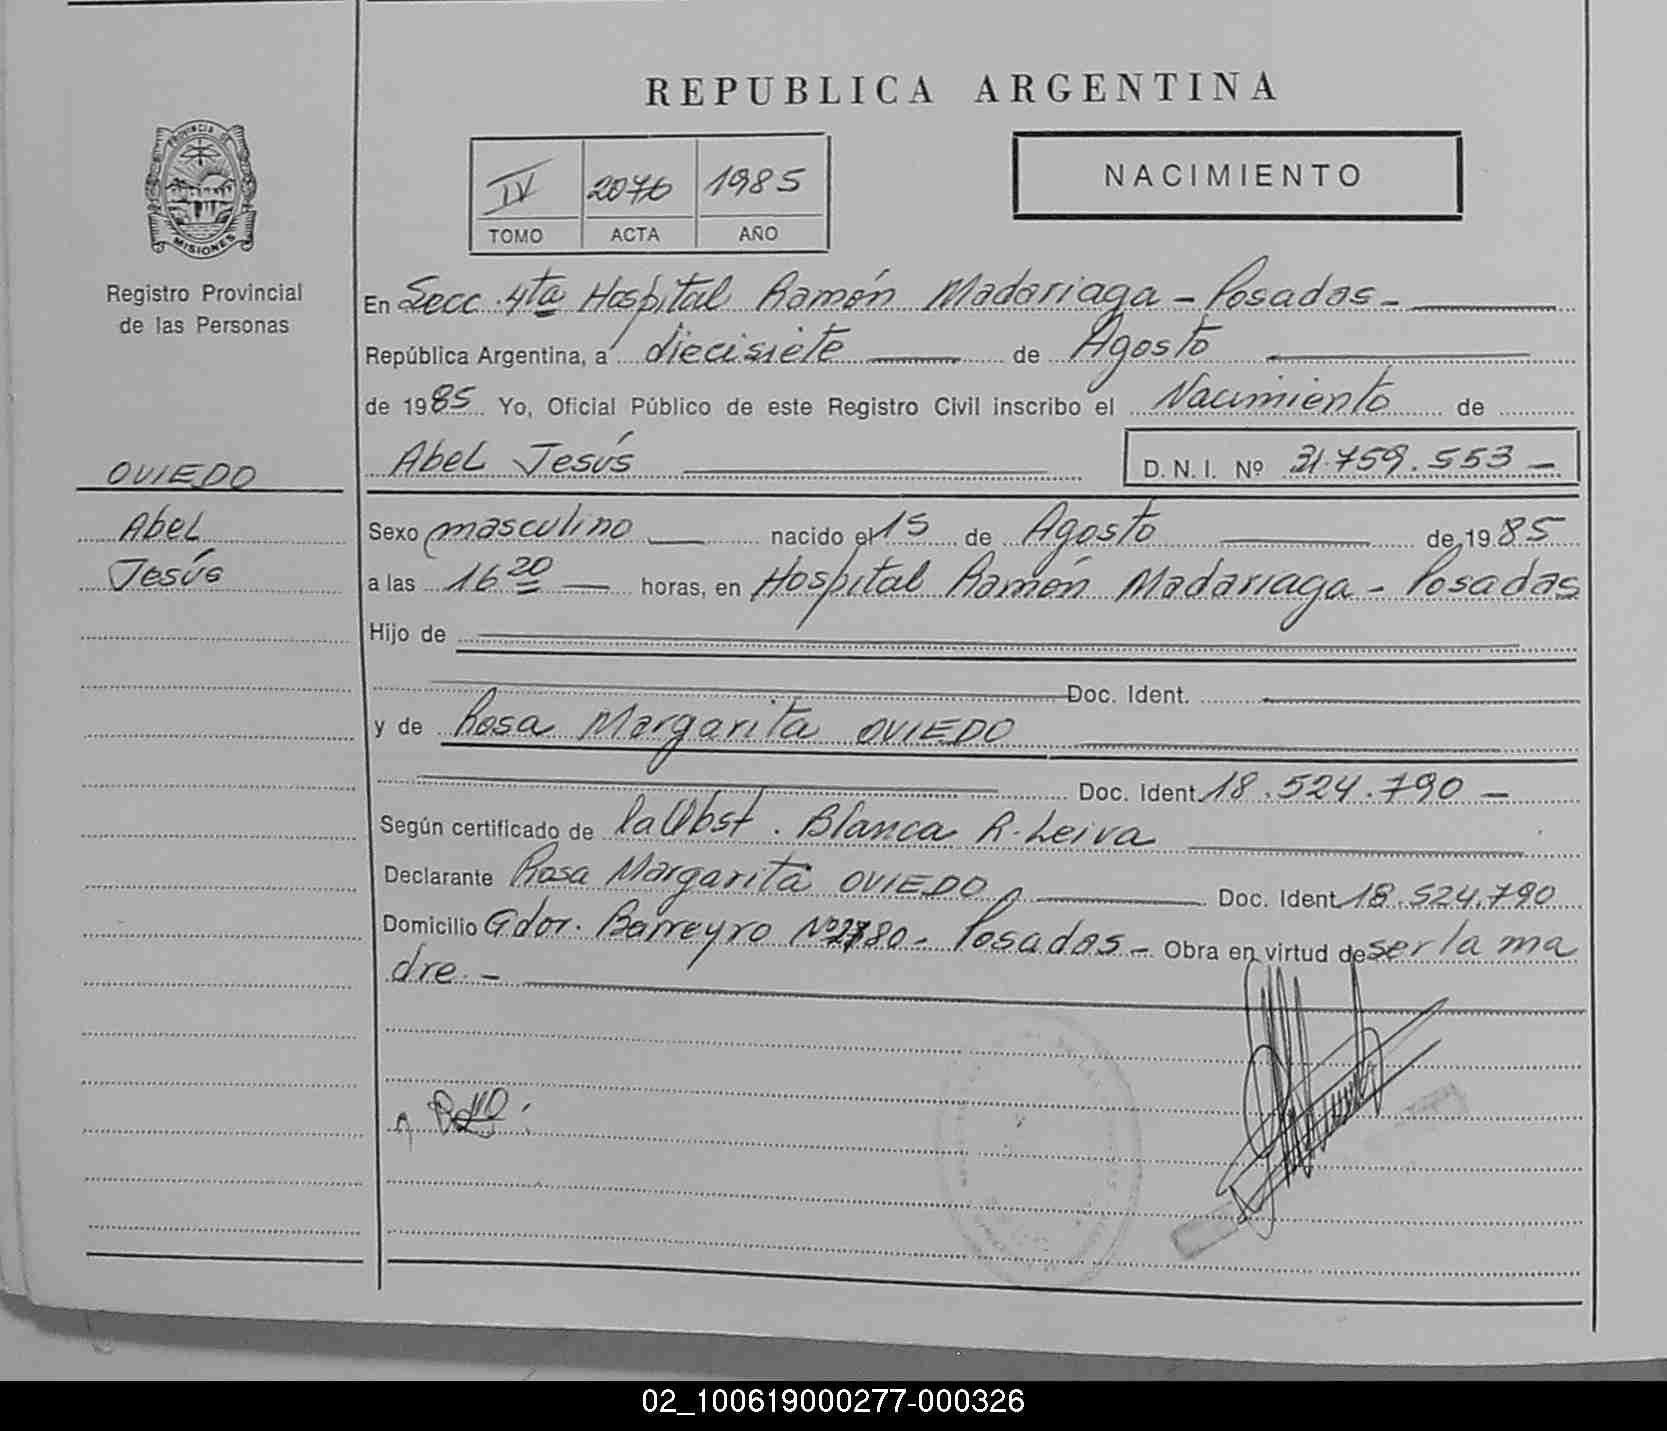 REPUBLICA ARGENTINA
PROVINCIA DE
MISIONES
Registro Provincial
de las Personas
IV 2076 1985
TOMO ACTA AÑO
NACIMIENTO
En Secc. 4ta Hospital Ramón Madariaga - Posadas -
República Argentina, a diecisiete de Agosto
de 1985 Yo, Oficial Público de este Registro Civil inscribo el Nacimiento de
Abel Jesús D. N. I. Nº 31.759.553 -
OVIEDO
Abel
Jesús
Sexo masculino nacido el 15 de Agosto de 1985
a las 16 20 horas, en Hospital Ramón Madariaga - Posadas
Hijo de
Doc. Ident.
y de Rosa Margarita OVIEDO
Doc. Ident. 18.524.790 -
Según certificado de la Obst. Blanca R. Leiva
Declarante Rosa Margarita OVIEDO Doc. Ident. 18.524.790
Domicilio Gdor. Barreyro Nº 2780 - Posadas - Obra en virtud de ser la ma
dre. -
02_100619000277-000326